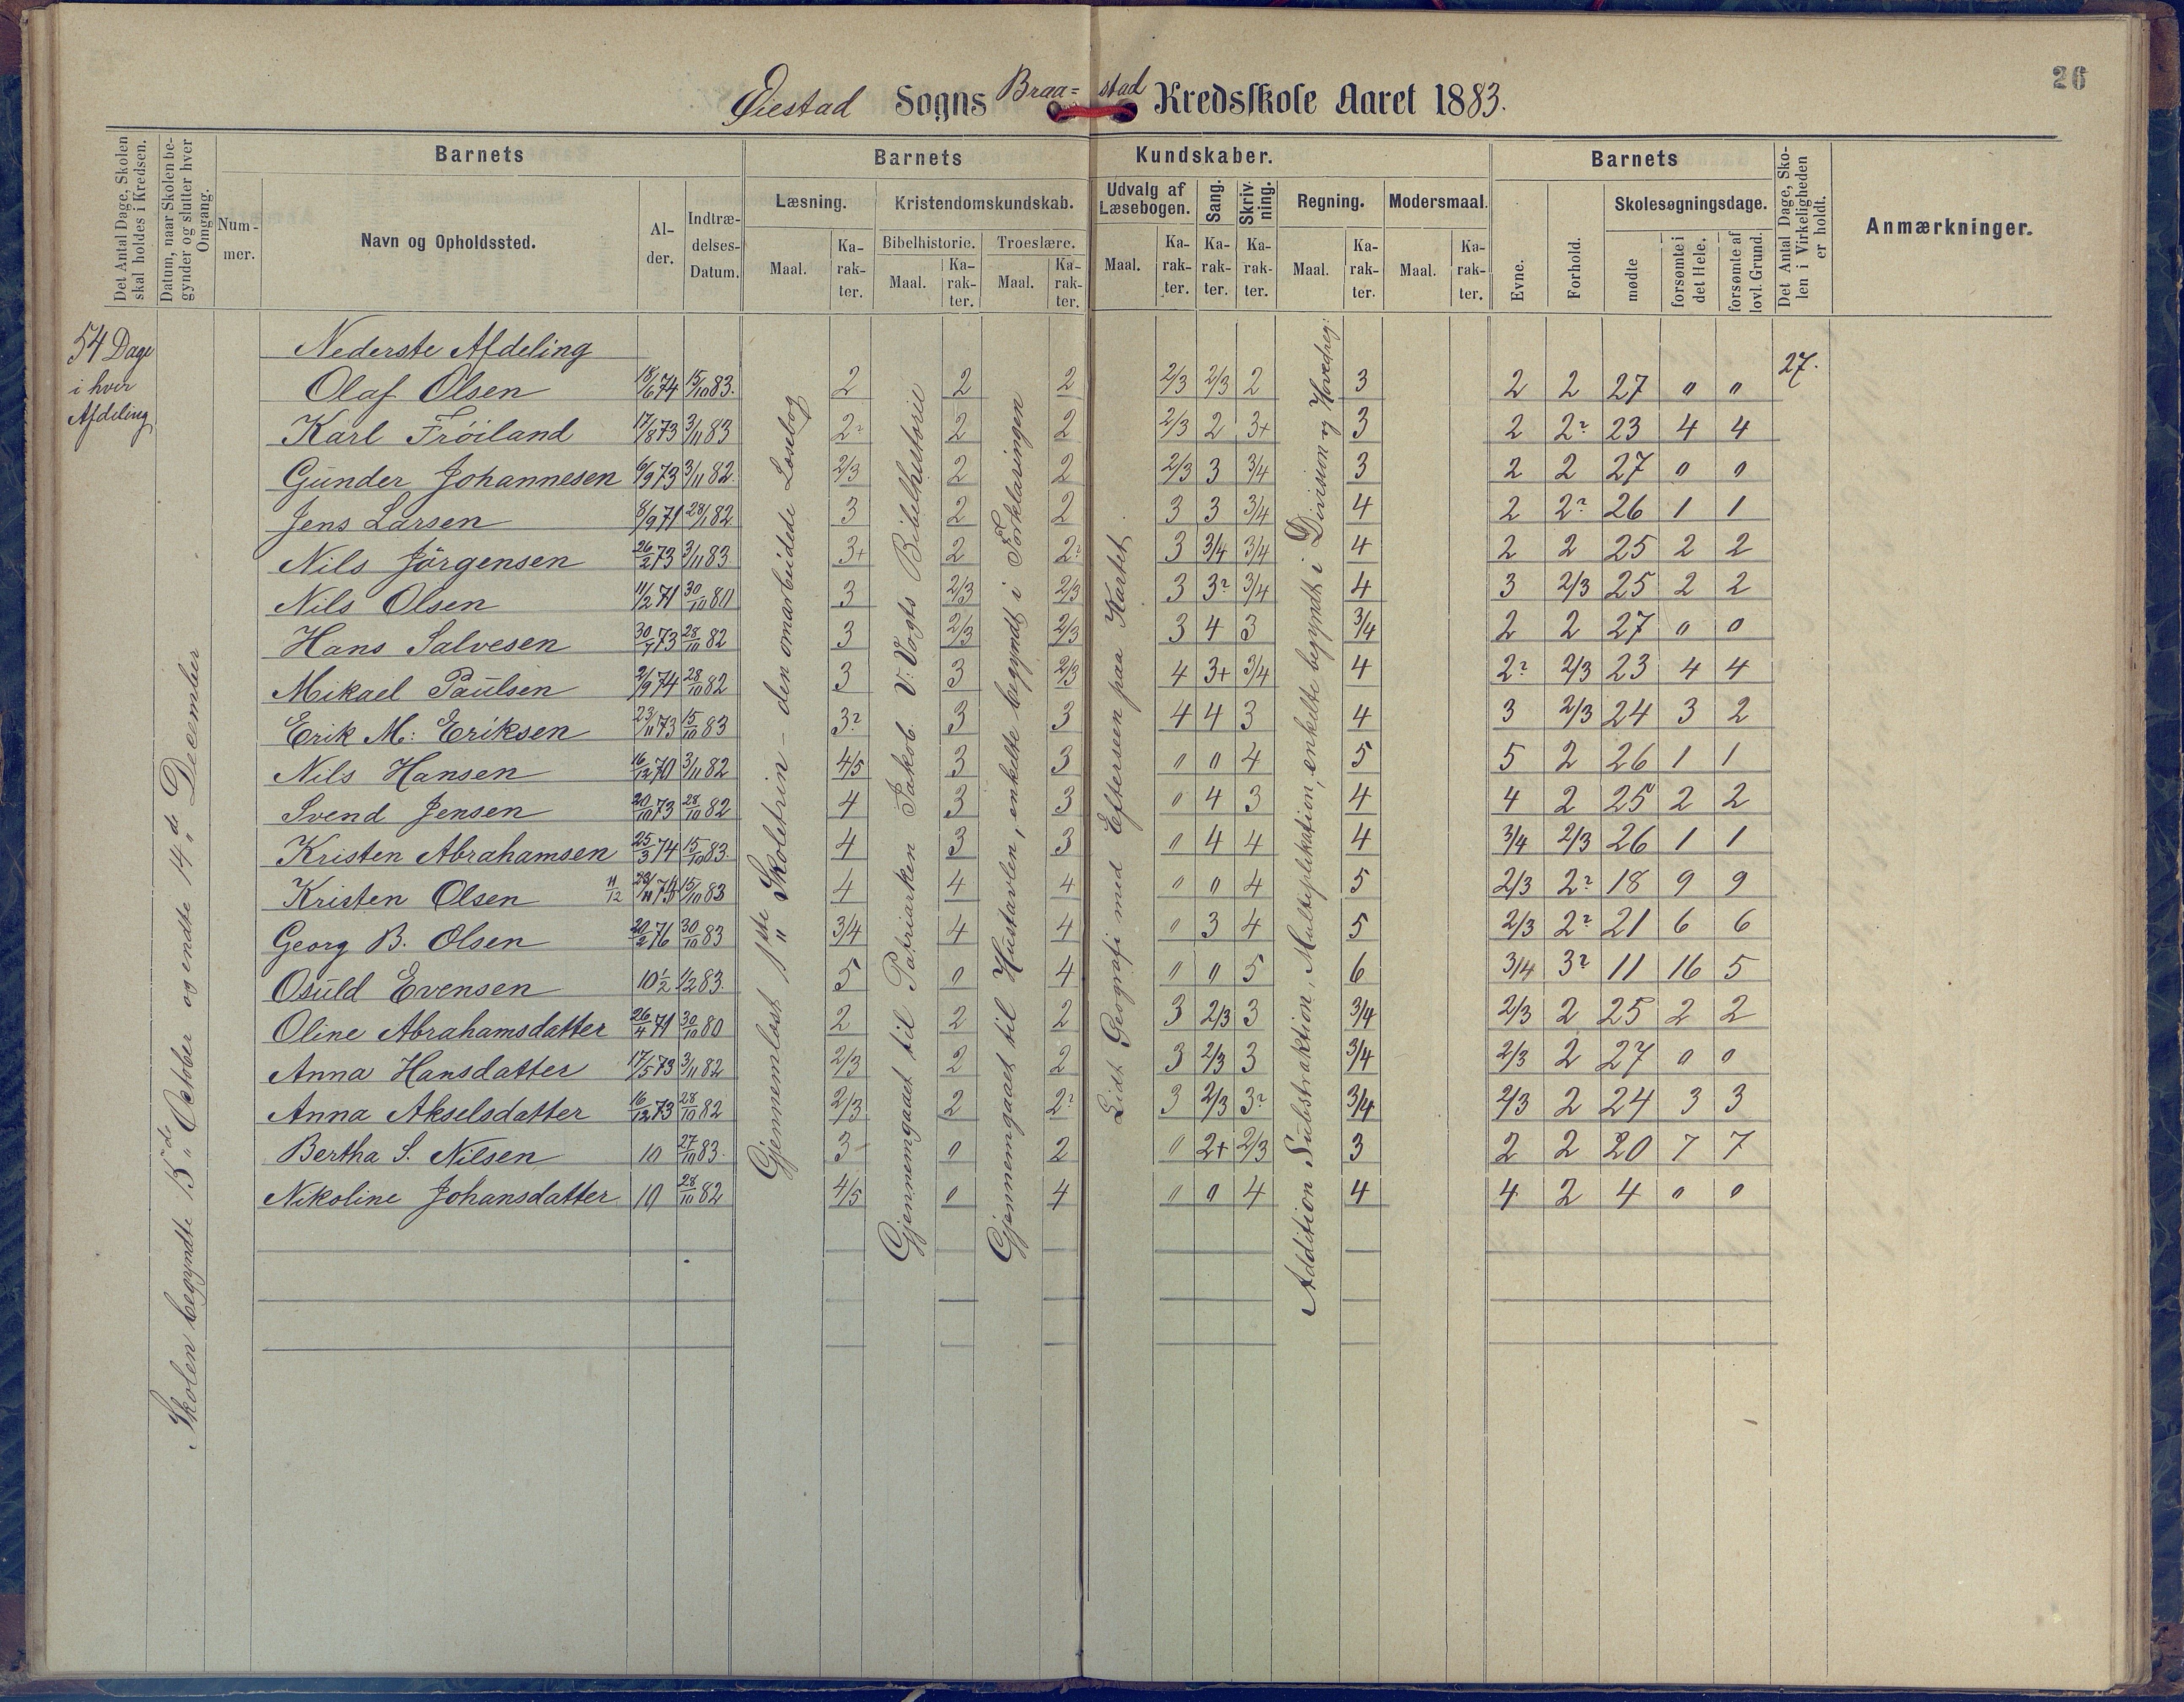 26
Øiestad Sogns Braa=stad Kredsskole Aaret 1883.
Det Antal Dage, Skolen skal holdes i Kredsen.
Datum, naar Skolen begynder og slutter hver Omgang.
Barnets
Num-mer.
Navn og Opholdssted.
Al-der.
Indtræ-delses-Datum.
Barnets Kundskaber.
Læsning.
Maal.
Ka-rak-ter.
Kristendomskundskab.
Bibelhistorie.
Maal.
Ka-rak-ter.
Troeslære.
Maal.
Ka-rak-ter.
Udvalg af Læsebogen.
Maal.
Ka-rak-ter.
Sang.
Ka-rak-ter.
Skriv-ning.
Ka-rak-ter.
Regning.
Maal.
Ka-rak-ter.
Modersmaal.
Maal.
Ka-rak-ter.
Barnets
Evne.
Forhold.
Skolesøgningsdage.
mødte
forsømte i det Hele.
forsømte af lovl. Grund.
Det Antal Dage, Sko-len i Virkeligheden er holdt.
Anmærkninger.
54 Dage
i hver
Afdeling
Skolen begyndte 15de October og endte 14de December
Gjennemlæst 1ste Skoletrin - den omarbeidede Læsebog
Gjennemgaaet til Patriarken Jakob. V: Vogts Bibelhistorie
Gjennemgaaet til Hustavlen, enkelte begyndt i Forklaringen
Lidt Geografi med Efterseen paa Kartet
Addition Substraktion, Multiplikation, enkelte begyndt i Division og Hovedreg:
27.
Nederste Afdeling
Olaf Olsen 18/6 74 15/10 83. 2 2 2 2/3 2/3 2 3 2 2 27 " "
Karl Frøiland 17/8 73 3/11 83 2? 2 2 2/3 2 3+ 3 2 2? 23 4 4
Gunder Johannesen 6/9 73 3/11 82. 2/3 2 2 2/3 3 3/4 3 2 2 27 0 0
Jens Larsen 8/9 71 28/1 82 3 2 2 3 3 3/4 4 2 2? 26 1 1
Nils Jørgensen 26/2 73 3/11 83. 3+ 2 2? 3 3/4 3/4 4 2 2 25 2 2
Nils Olsen 11/2 71 30/10 80 3 2/3 2/3 3 3? 3/4 4 3 2/3 25 2 2
Hans Salvesen 30/7 73 28/10 82 3 2/3 2/3 3 4 3 3/4 2 2 27 0 0
Mikael Paulsen 2/9 74 28/10 82 3 3 2/3 4 3+ 3/4 4 2? 2/3 23 4 4
Erik M: Eriksen 23/11 73 15/10 83 3? 3 3 4 4 3 4 3 2/3 24 3 2
Nils Hansen 16/12 70 3/11 82 4/5 3 3 0 0 4 5 5 2 26 1 1
Svend Jensen 20/10 73 28/10 82 4 3 3 0 4 3 4 4 2 25 2 2
Kristen Abrahamsen 25/3 74 15/10 83. 4 3 3 0 4 4 4 3/4 2/3 26 1 1
Kristen Olsen 11/12 15/10 83 4 4 4 0 0 4 5 2/3 2? 18 9 9
Georg B. Olsen 20/2 76 30/10 83 3/4 4 4 0 3 4 5 2/3 2? 21 6 6
Osuld Evensen 10 1/2 1/2 83. 5 0 4 0 0 5 6 3/4 3? 11 16 5
Oline Abrahamsdatter 26/4 71 30/10 80 2 2 2 3 2/3 3 3/4 2/3 2 25 2 2
Anna Hansdatter 17/5 73 3/11 82 2/3 2 2 3 2/3 3 3/4 2/3 2 27 0 0
Anna Akselsdatter 16/12 73 28/10 82 2/3 2 2? 3 2/3 3? 3/4 2/3 2 24 3 3
Bertha S. Nilsen 10 27/10 83. 3 0 2 0 2+ 2/3 3 2 2 20 7 7
Nikoline Johansdatter 10 28/10 82 4/5 0 4 0 0 4 4 4 2 4 0 0